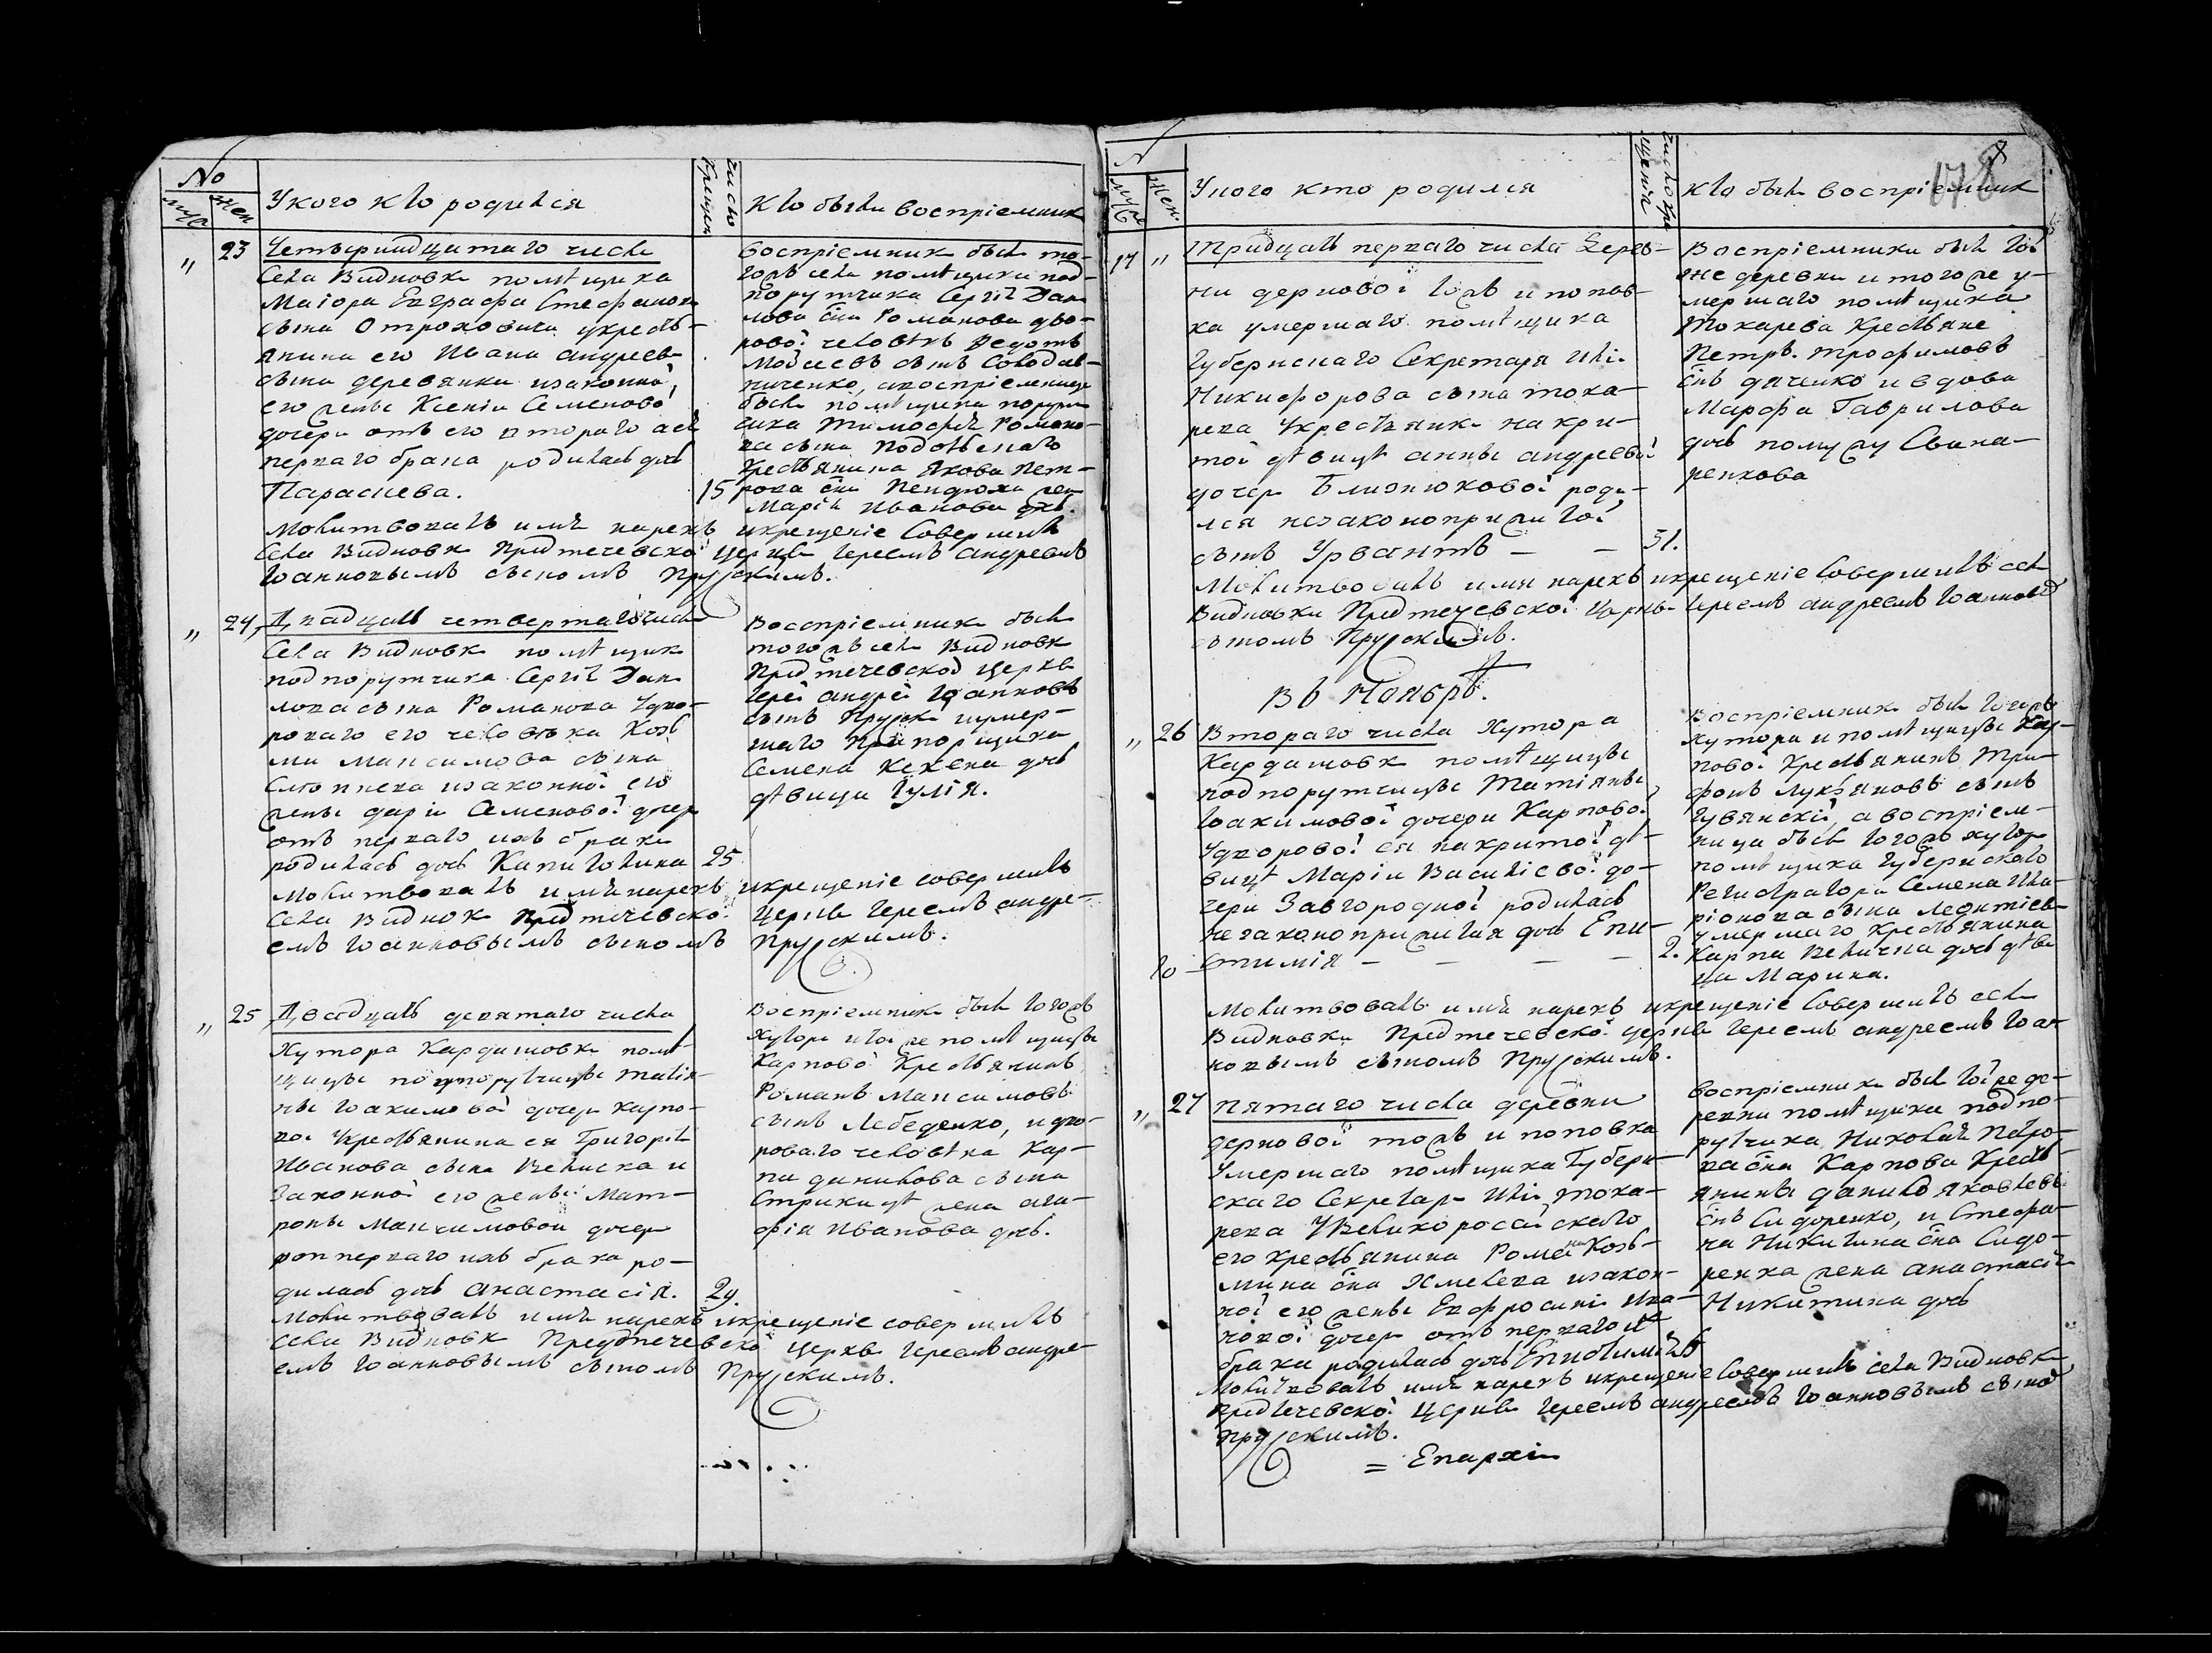 No
муж
жен
У кого кто родился
число
крещен
Кто были восприемник
„ 23 Четвернадцатаго числа
Села Видновки помѣщика
Маіора Евграфа Стефанова
сына Отроховича укресть-
янина его Ивана Андреев
сына деревянки изаконной
его жены Ксеніи Семеновой
дочери отъ его втораго а ея
перваго брака родилась дочь
Параскева. 15
восприемник былъ то-
гожъ села помѣщика под-
порутчика Сергѣя Дани
лова сна Романова дво-
ровой человѣкъ Федотъ
Мойсеевъ сынъ
ниченко, авоспріемница
была помѣщика порут
чика Тимофея Романо-
ва сына
крестьянина Якова Пет-
рова сна жена
Марія Иванова дчь.
Молитвовалъ имя нарекъ икрещеніе совершилъ
села Видновки Предтечевской церкви Іереемъ Андреемъ
Іоанновымъ сыномъ Прускимъ.
„ 24, Двадцать четвертаго числа
Села Видновки помѣщик
подпорутчика Сергѣя Дани
лова сына Романова Удво-
роваго его человѣка Козь
мы Максимова сына
изаконной его
жены Даріи Семеновой дочер
отъ перваго ихъ брака
родилась дочь Капитолина 25
Восприемник былъ
тогожъ села Видновки
Предтечевской церкви
Іерей Андрей Іоанновъ
сынъ Пруский иумер-
шаго прапорщика
Семена Кекена дочь
дѣвица Іулія.
Молитвовалъ имя нарекъ икрещеніе совершилъ
Села Видновк Предтечевской церкви Іереемъ Андре-
емъ Іоанновымъ сыномъ Прускимъ.
„ 25 Двадцать девятаго числа
Хутора Кардашовки помѣ-
щицы подпорутчицы Татія-
ны Іоакимовой дочери Карпо-
вой Укрестьянина ея Григорія
Иванова сына и
Законной его жены Мат-
роны Максимовой дочери
отъ перваго ихъ брака ро-
дилась дочь Анастасія. 29.
Воспріемник былъ тогожъ
Хутора итойже помѣщицы
Карповой Крестьянинъ
Романъ Максимовъ
сынъ Лебеденко, идво-
роваго человѣка Кар-
па Данилова сына
жена Ага-
фія Иванова дчь.
Молитвовалъ имя нарекъ икрещеніе совершилъ
Села Видновк Предтечевской церкви Іереемъ Андре-
емъ Іоанновымъ сыномъ Прускимъ.
муж
жен.
У кого кто родился
число кре
щенія
Кто былъ воспріемник
178
17 „ Тридцать перваго числа Дерев-
ни дерновой тожъ и попов-
ка умершаго помѣщика
Губернскаго Секретаря Иліи
Никифорова сына тока-
рева Укрестьянки накри-
той дѣвицы Анны Андреевой
дочери Близнюковой роди-
лся незаконоприжитой
сынъ Урвантъ — — 31.
Воспріемники были той
же деревни итогоже у-
мершаго помѣщика
Токарева Крестьяне
Петръ Трофимовъ
снъ дяченко и вдова
Марфа Гаврилова
дочь помужу Свина-
ренкова
Молитвовалъ имя нарекъ икрещеніе совершилъ села
Видновки Предтечевской Церкви Іереемъ Андреемъ Іоанновым
сыномъ Прускимъ.
Въ Ноябрѣ.
„ 26 Втораго числа Хутора
Кардашовк помѣщицы
подпорутчицы Татіяны
Іоакимовой дочери Карповой
Удворовой ея накритой дѣ-
вицы Маріи Василіевой до-
чери Завгородной родилась
незаконоприжитая дочь Епи-
стимія — — — — 2.
Воспріемник былъ тогожъ
хутора и помѣщицы Кар-
повой Крестьянинъ Три-
фонъ Лукьяновъ сынъ
а воспріем-
ница была тогожъ хутор
помѣщика Губернскаго
Регистратора Семена Ила-
ріонова сына Леонтіев
умершаго крестьянина
Карпа Величка дочь дѣви
ца Марина.
Молитвовалъ имя нарекъ икрещеніе совершилъ села
Видновки Предтечевской церкви Іереемъ Андреемъ Іоан-
новымъ сыномъ Прускимъ.
„ 27 Пятаго числа деревни
дерновой тожъ и поповка
Умершаго помѣщика Губерн-
скаго Секретаря Иліи тока-
рева Увеликороссійскаго
его крестьянина Романа Козь-
мина сна Хмелева изакон-
ной его жены Евфросиніи Ива-
новой дочери отъ перваго ихъ
брака родилась дочь Епистимія 6
Воспріемник былъ тойже де-
ревни помѣщика подпо-
рутчика Николая Петро-
ва сна Карпова Кресть-
янинъ Данило Яковлевъ
снъ Сидоренко, и Стефа-
на Никитина сна Сидо-
ренка жена Анастасія
Никитина дчь
Молитвовалъ имя нарекъ икрещеніе совершилъ села Видновк
Предтечевской Церкви Іереемъ Андреемъ Іоанновымъ сыном
Прускимъ.
= Епархіи